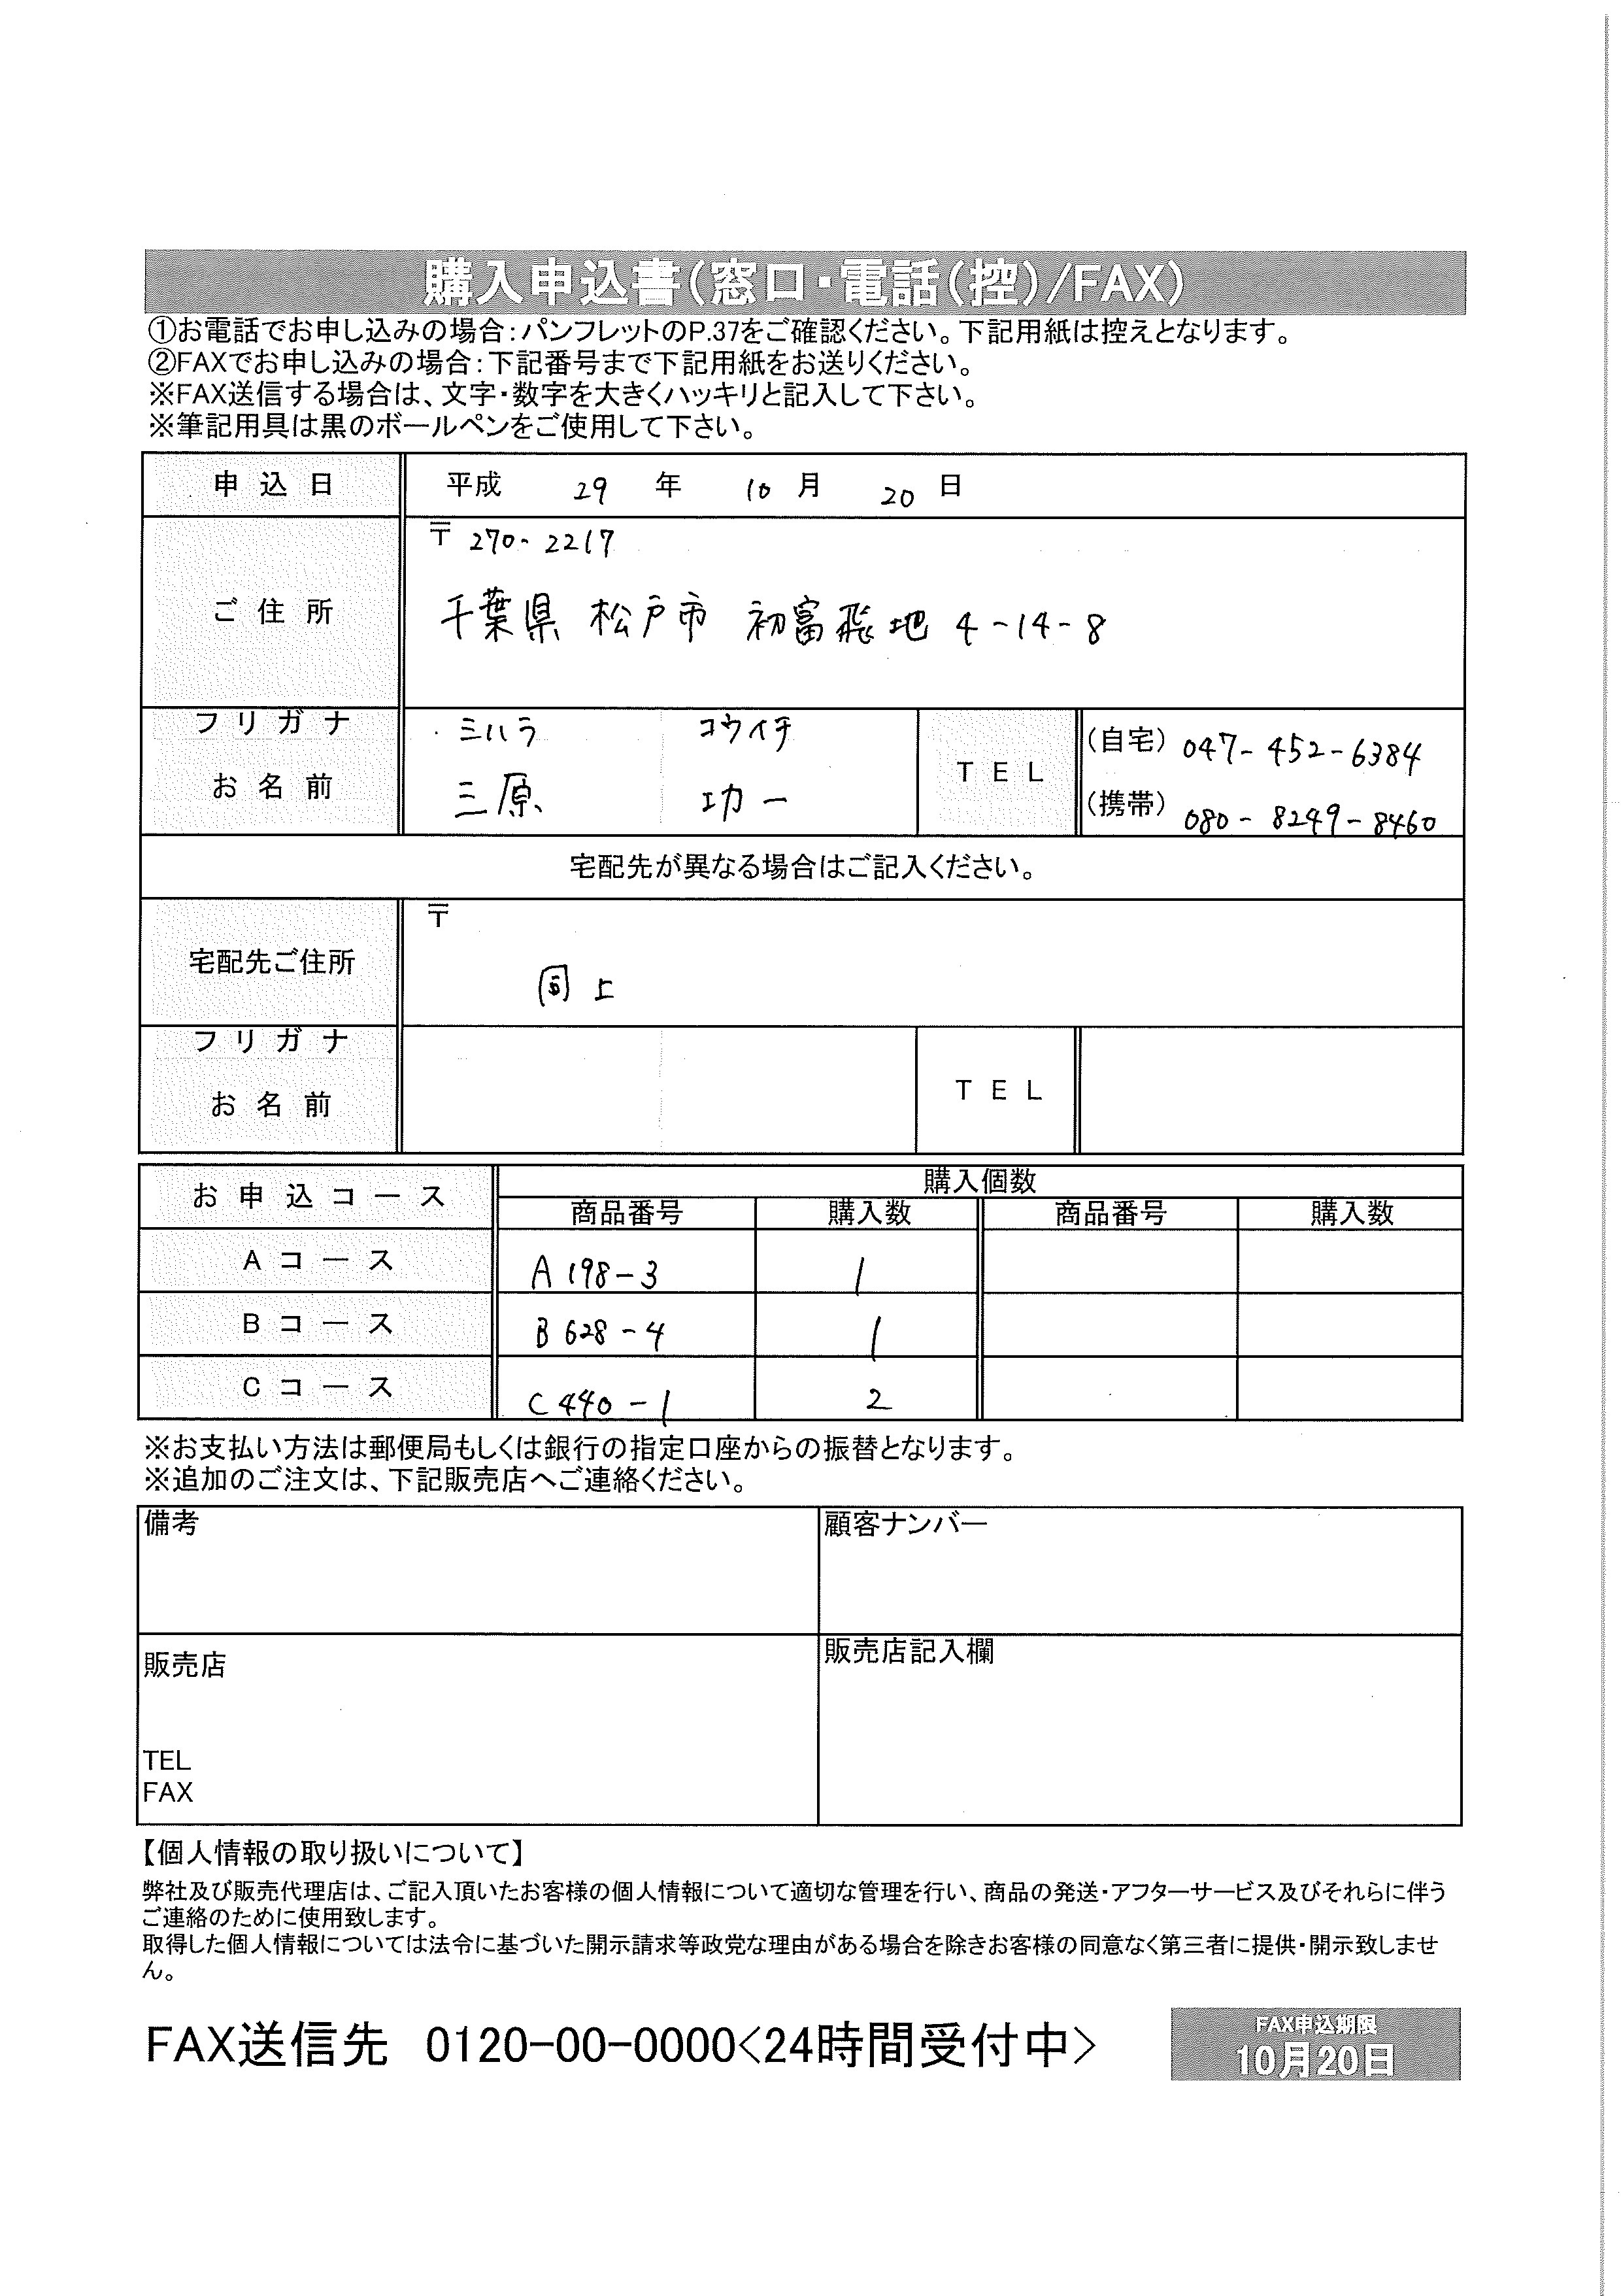 購入申込書(窓口・電話(控)/FAX)
①お電話でお申し込みの場合:パンフレットのP.37をご確認ください。下記用紙は控えとなります。
②FAXでお申し込みの場合:下記番号まで下記用紙をお送りください。
※FAX送信する場合は、文字・数字を大きくハッキリと記入して下さい。
※筆記用具は黒のボールペンをご使用して下さい。
申込日 平成 29 年 10 月 20 日
〒 270-2217
ご住所 千葉県 松戸市 初富飛地 4-14-8
フリガナ ミハラ コウイチ
お名前 三原 功一
TEL
(自宅) 047-452-6384
(携帯) 080-8249-8460
宅配先が異なる場合はご記入ください。
〒
宅配先ご住所 同上
フリガナ
お名前 TEL
お申込コース 購入個数
商品番号 購入数 商品番号 購入数
Aコース A198-3 1
Bコース B628-4 1
Cコース C440-1 2
※お支払い方法は郵便局もしくは銀行の指定口座からの振替となります。
※追加のご注文は、下記販売店へご連絡ください。
備考 顧客ナンバー
販売店 販売店記入欄
TEL
FAX
【個人情報の取り扱いについて】
弊社及び販売代理店は、ご記入頂いたお客様の個人情報について適切な管理を行い、商品の発送・アフターサービス及びそれらに伴う
ご連絡のために使用致します。
取得した個人情報については法令に基づいた開示請求等政党な理由がある場合を除きお客様の同意なく第三者に提供・開示致しませ
ん。
FAX送信先 0120-00-0000<24時間受付中>
FAX申込期限
10月20日